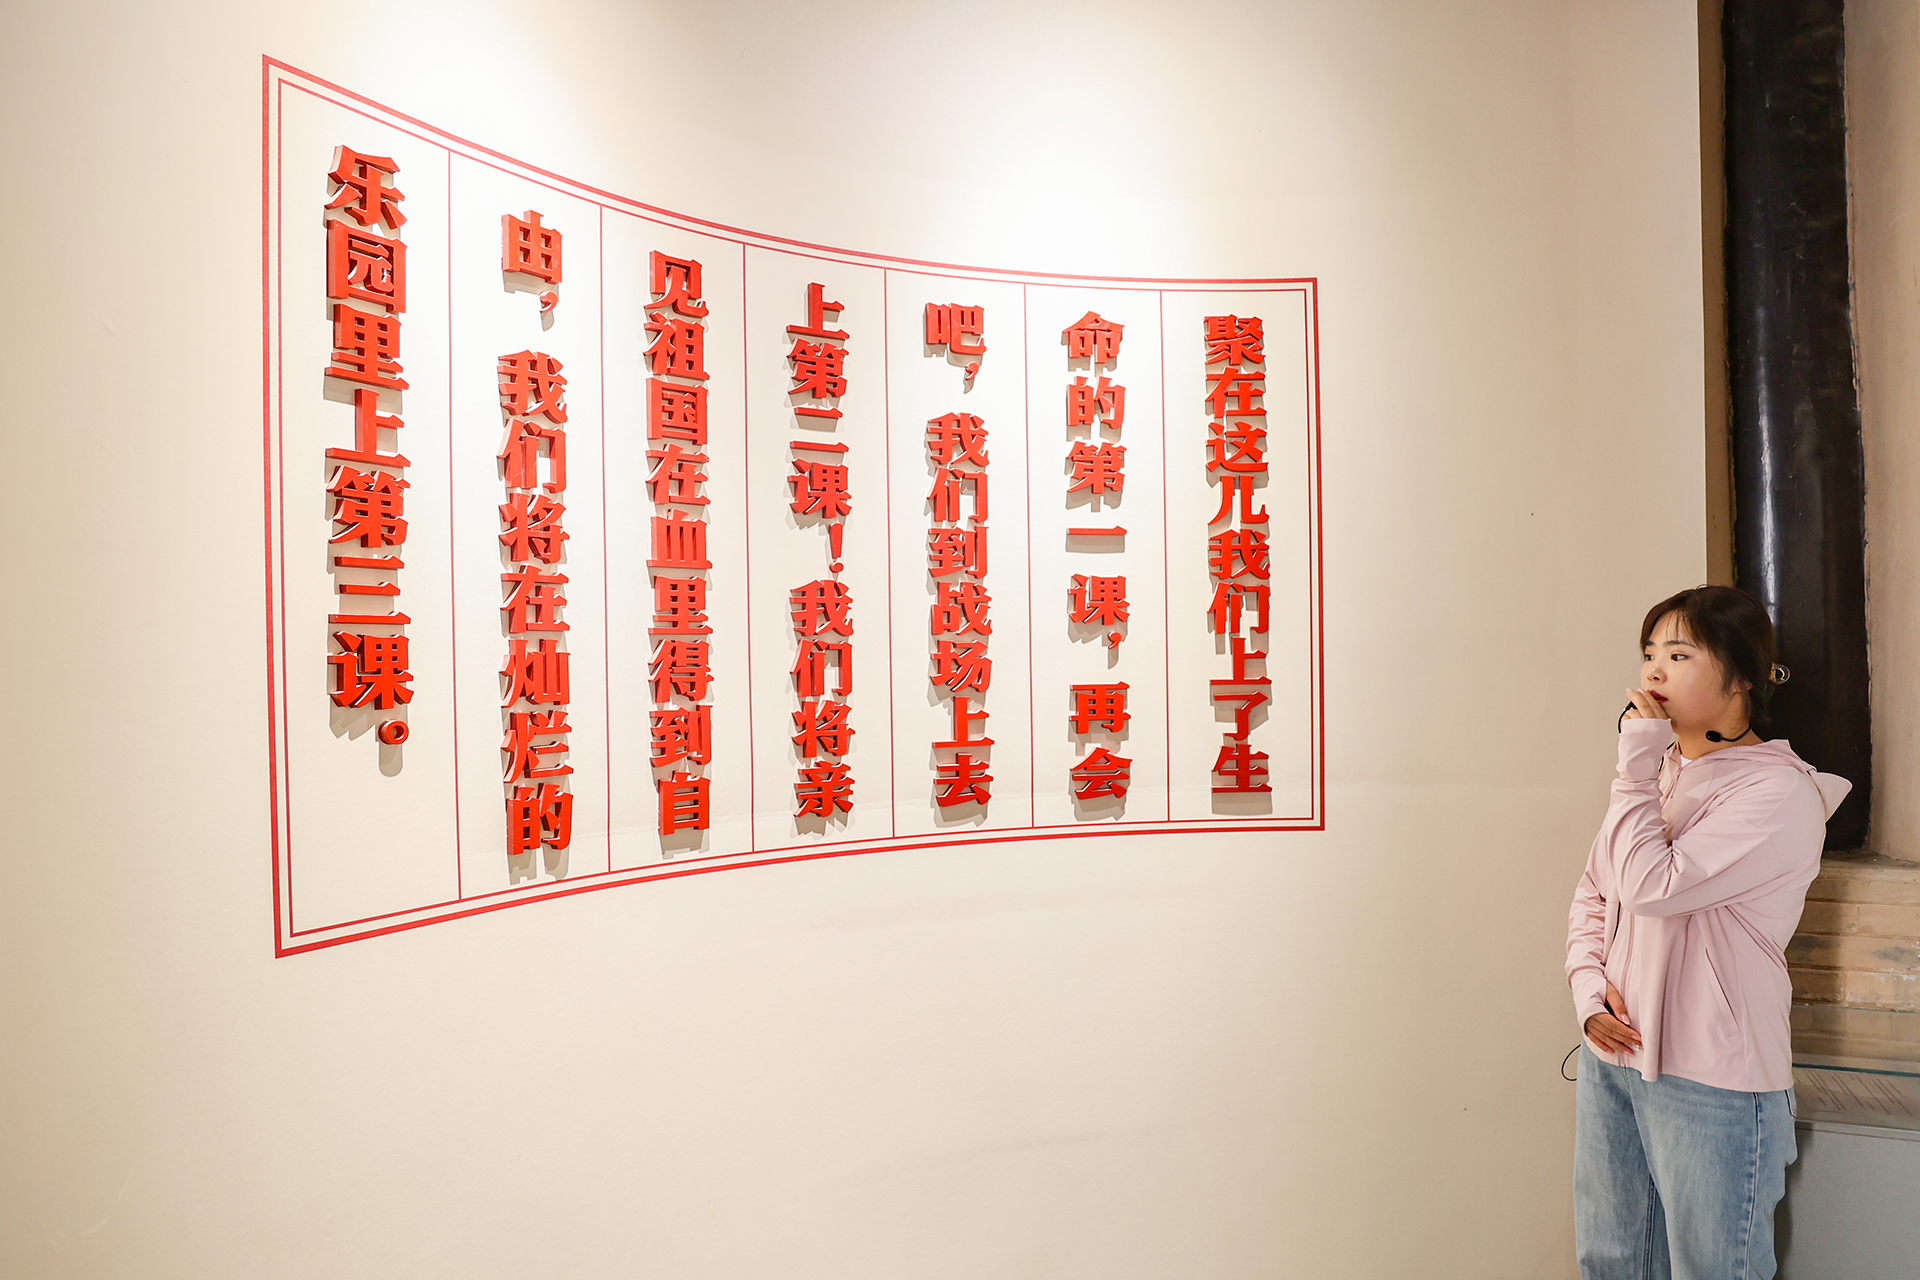 聚在这儿我们上了生
命的第一课，再会
吧，我们到战场上去
上第二课！我们将亲
见祖国在血里得到自
由，我们将在灿烂的
乐园里上第三课。